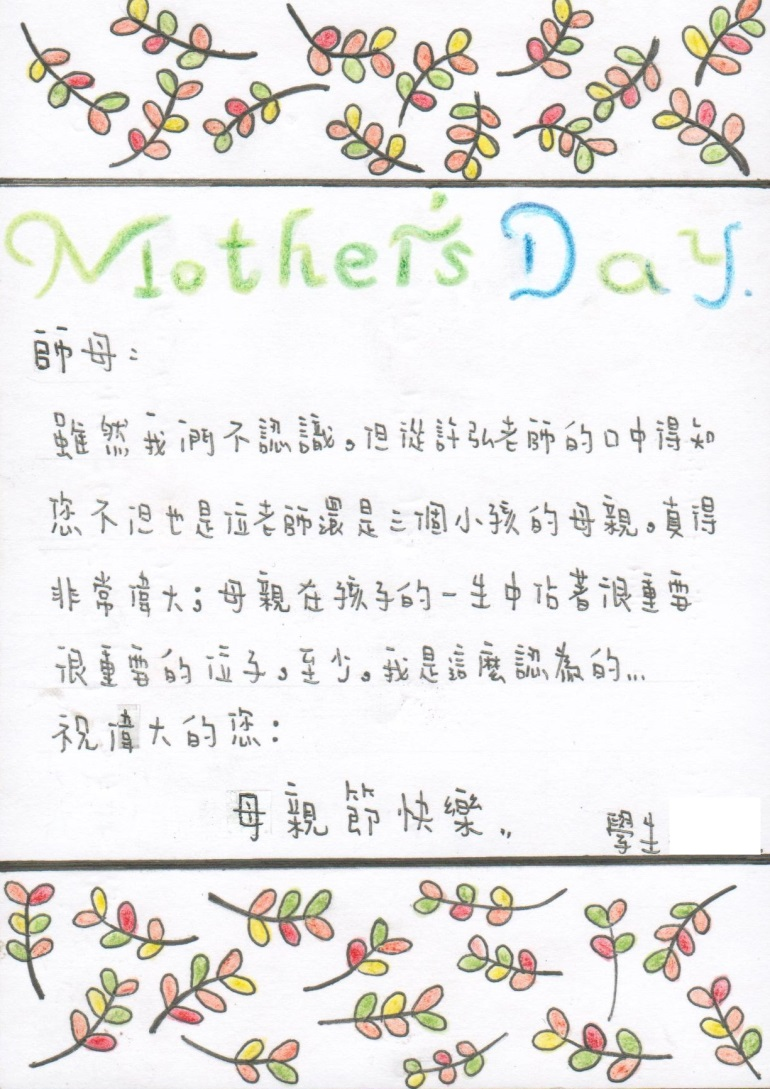 Mother's Day.
師母：
雖然我們不認識。但從許弘老師的口中得知
您不但也是位老師還是三個小孩的母親。真得
非常偉大；母親在孩子的一生中佔著很重要
很重要的位子。至少。我是這麼認為的...
祝偉大的您：
母親節快樂..
學生